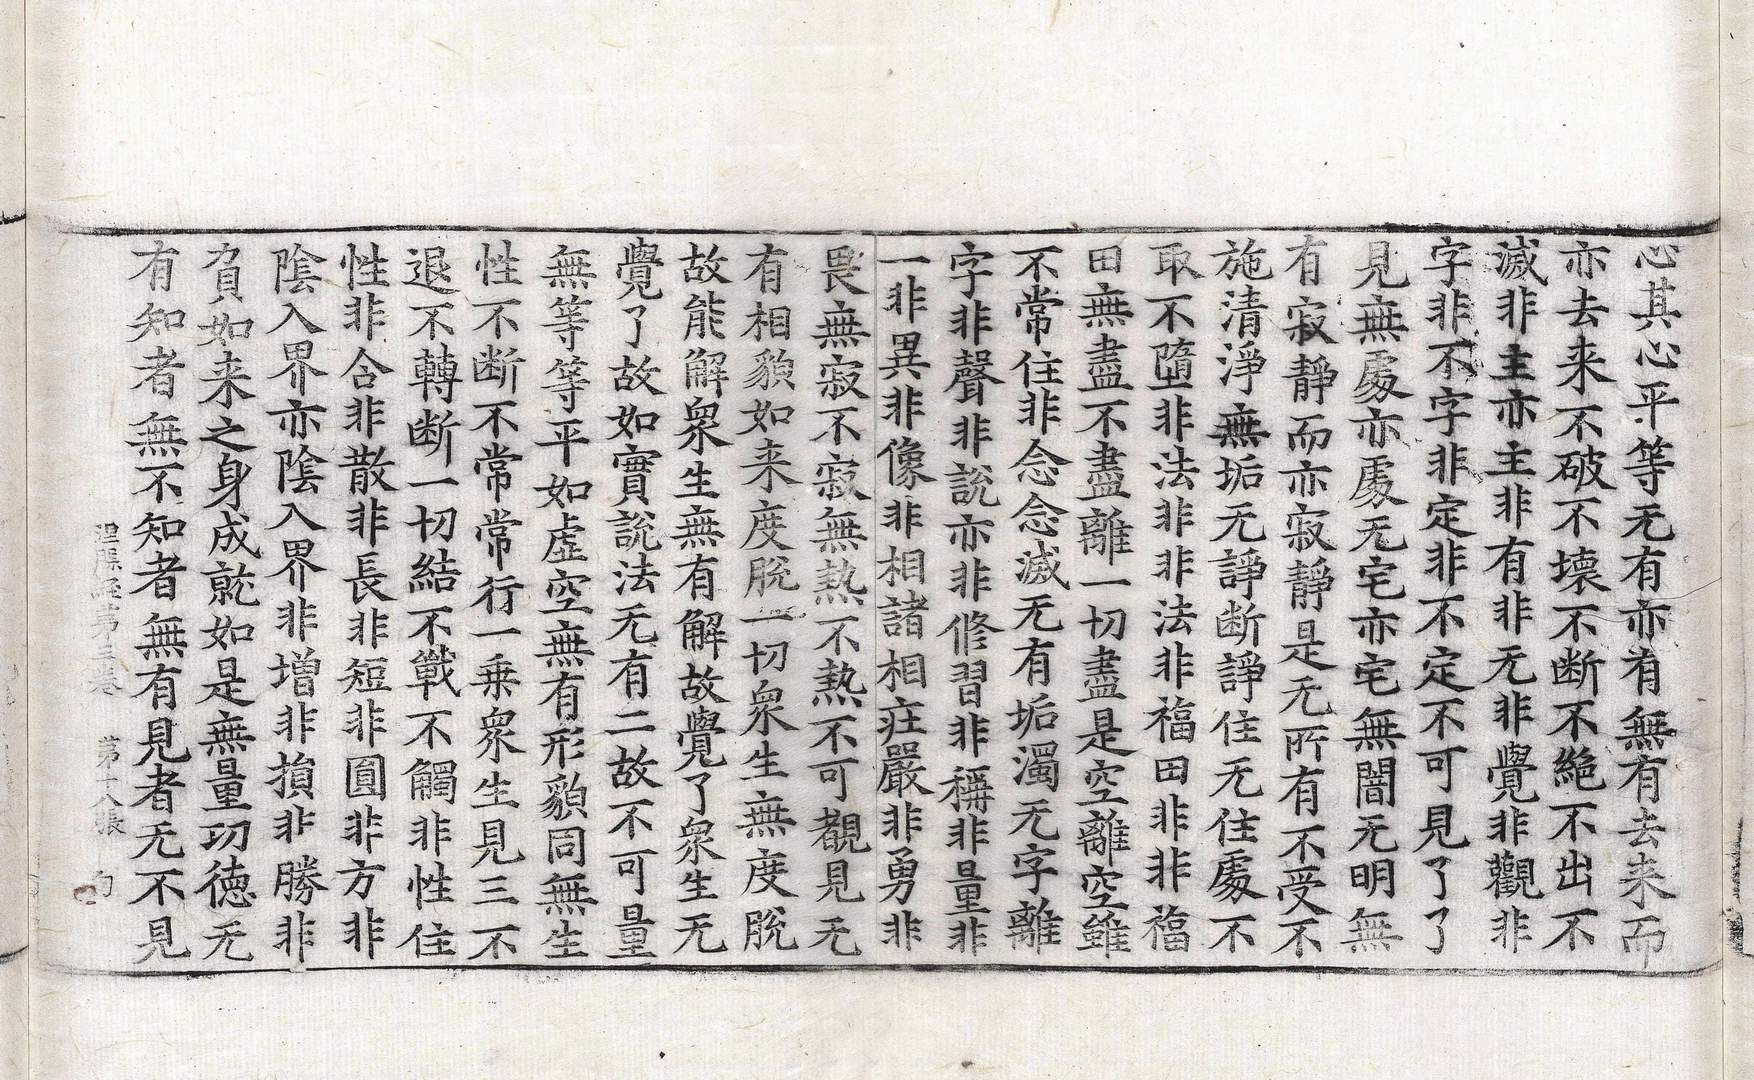 心其心平等无有亦有無有去来而
亦去来不破不壞不断不絕不出不
滅非主亦主非有非无非覺非觀非
字非不字非定非不定不可見了了
見無處亦處无宅亦宅無闇无明無
有寂靜而亦寂靜是无所有不受不
施清淨無垢无諍断諍住无住處不
取不墮非法非非法非福田非非福
田無盡不盡離一切盡是空離空雖
不常住非念念滅无有垢濁无字離
字非聲非說亦非修習非稱非量非
一非異非像非相諸相莊嚴非勇非
畏無寂不寂無熱不熱不可覩見无
有相貌如来度脫一切衆生無度脫
故能解衆生無有解故覺了衆生无
覺了故如實說法无有二故不可量
無等等平如虛空無有形貌同無生
性不断不常常行一乗衆生見三不
退不轉断一切結不戰不觸非性住
性非合非散非長非短非圓非方非
陰入界亦陰入界非增非損非勝非
負如来之身成就如是無量功德无
有知者無不知者無有見者无不見
涅槃經第三卷　第十八張　勹